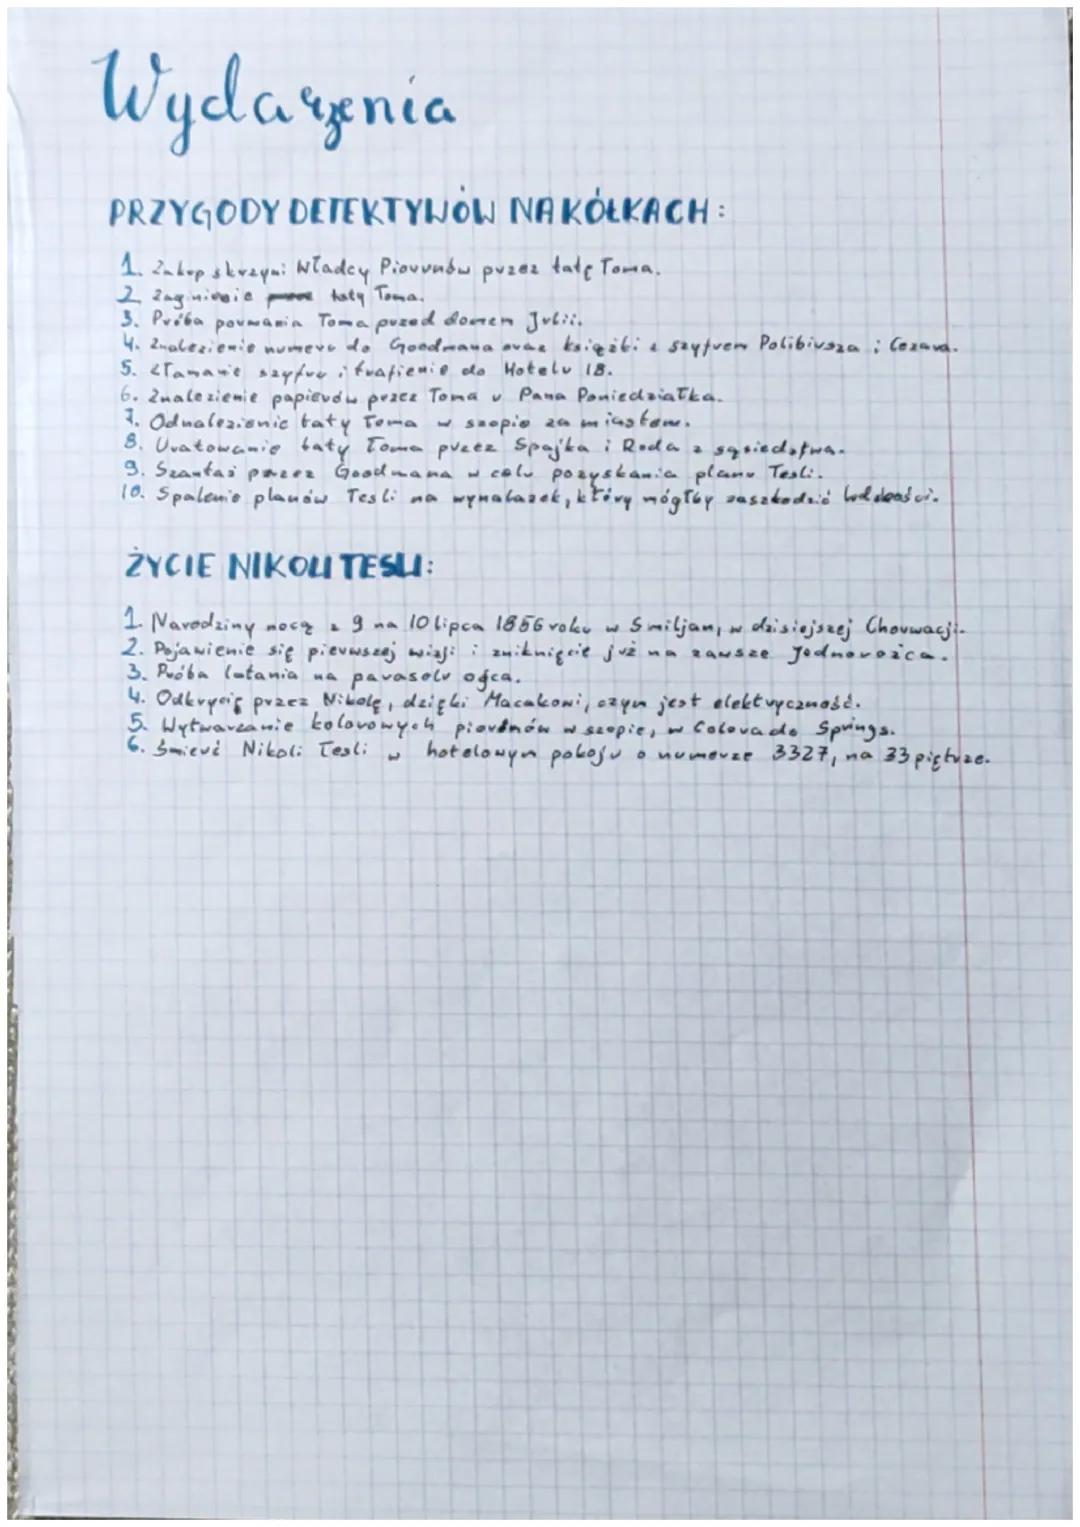 Wydarzenia
PRZYGODY DETEKTYWÓW NA KÓŁKACH:
1. Zakup skrzyni Władcy Piorunów przez tatę Toma.
2. Zaginięcie taty Toma.
3. Próba porwania Toma przed domem Julii.
4. Znalezienie numeru do Goodmana oraz książki z szyfrem Polibiusza i Cezara.
5. Złamanie szyfru i trafienie do Hotelu 18.
6. Znalezienie papierów przez Toma u Pana Poniedziałka.
7. Odnalezienie taty Toma w szopie za miastem.
8. Uratowanie taty Toma przez Spajka i Roda z sąsiedztwa.
9. Szantaż przez Goodmana w celu pozyskania planu Tesli.
10. Spalenie planów Tesli na wynalazek, który mógłby zaszkodzić ludzkości.
ŻYCIE NIKOLI TESLI:
1. Narodziny nocą z 9 na 10 lipca 1856 roku w Smiljan, w dzisiejszej Chorwacji.
2. Pojawienie się pierwszej wizji i zniknięcie już na zawsze Jednorożca.
3. Próba latania na parasolu ojca.
4. Odkrycie przez Nikolę, dzięki Macakowi, czym jest elektryczność.
5. Wytwarzanie kolorowych piorunów w szopie, w Colorado Springs.
6. Śmierć Nikoli Tesli w hotelowym pokoju o numerze 3327, na 33 piętrze.